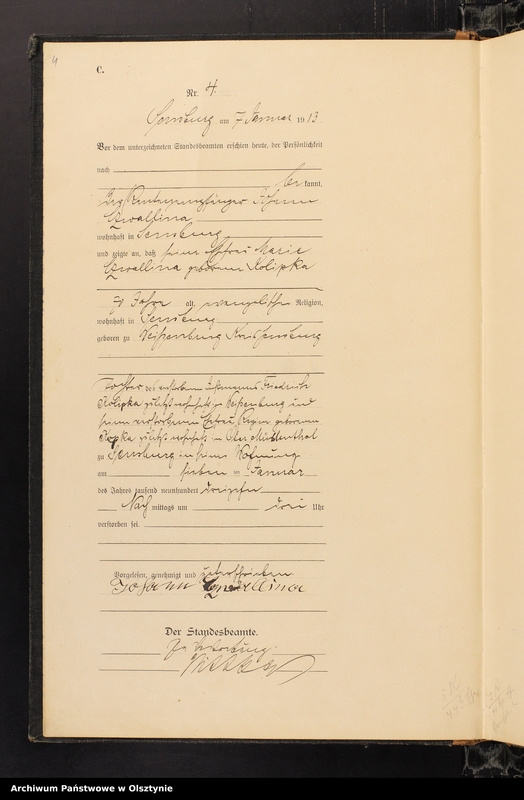 4
C.
Nr. 4.
Sensburg am 7 Januar 1913.
Vor dem unterzeichneten Standesbeamten erschien heute, der Persönlichkeit
nach
be kannt,
der Rentenempfänger Johann
Czwallina
wohnhaft in Sensburg
und zeigte an, daß seine Ehefrau Marie
Czwallina geborene Kolipka
Jahre alt, evangelischer Religion,
wohnhaft in Sensburg
geboren zu Weißenburg Kreis Sensburg
Tochter des verstorbenen Friedrich
Kolipka zuletzt wohnhaft in Weißenburg und
seiner verstorbenen Ehefrau geborenen
zuletzt wohnhaft in Ober Mühlenthal
zu Sensburg in seiner Wohnung
am sieben ten Januar
des Jahres tausend neunhundert dreizehn
Nach mittags um drei Uhr
verstorben sei.
Vorgelesen, genehmigt und unterschrieben
Johann Czwallina
Der Standesbeamte.
In Vertretung.
Archiwum Państwowe w Olsztynie